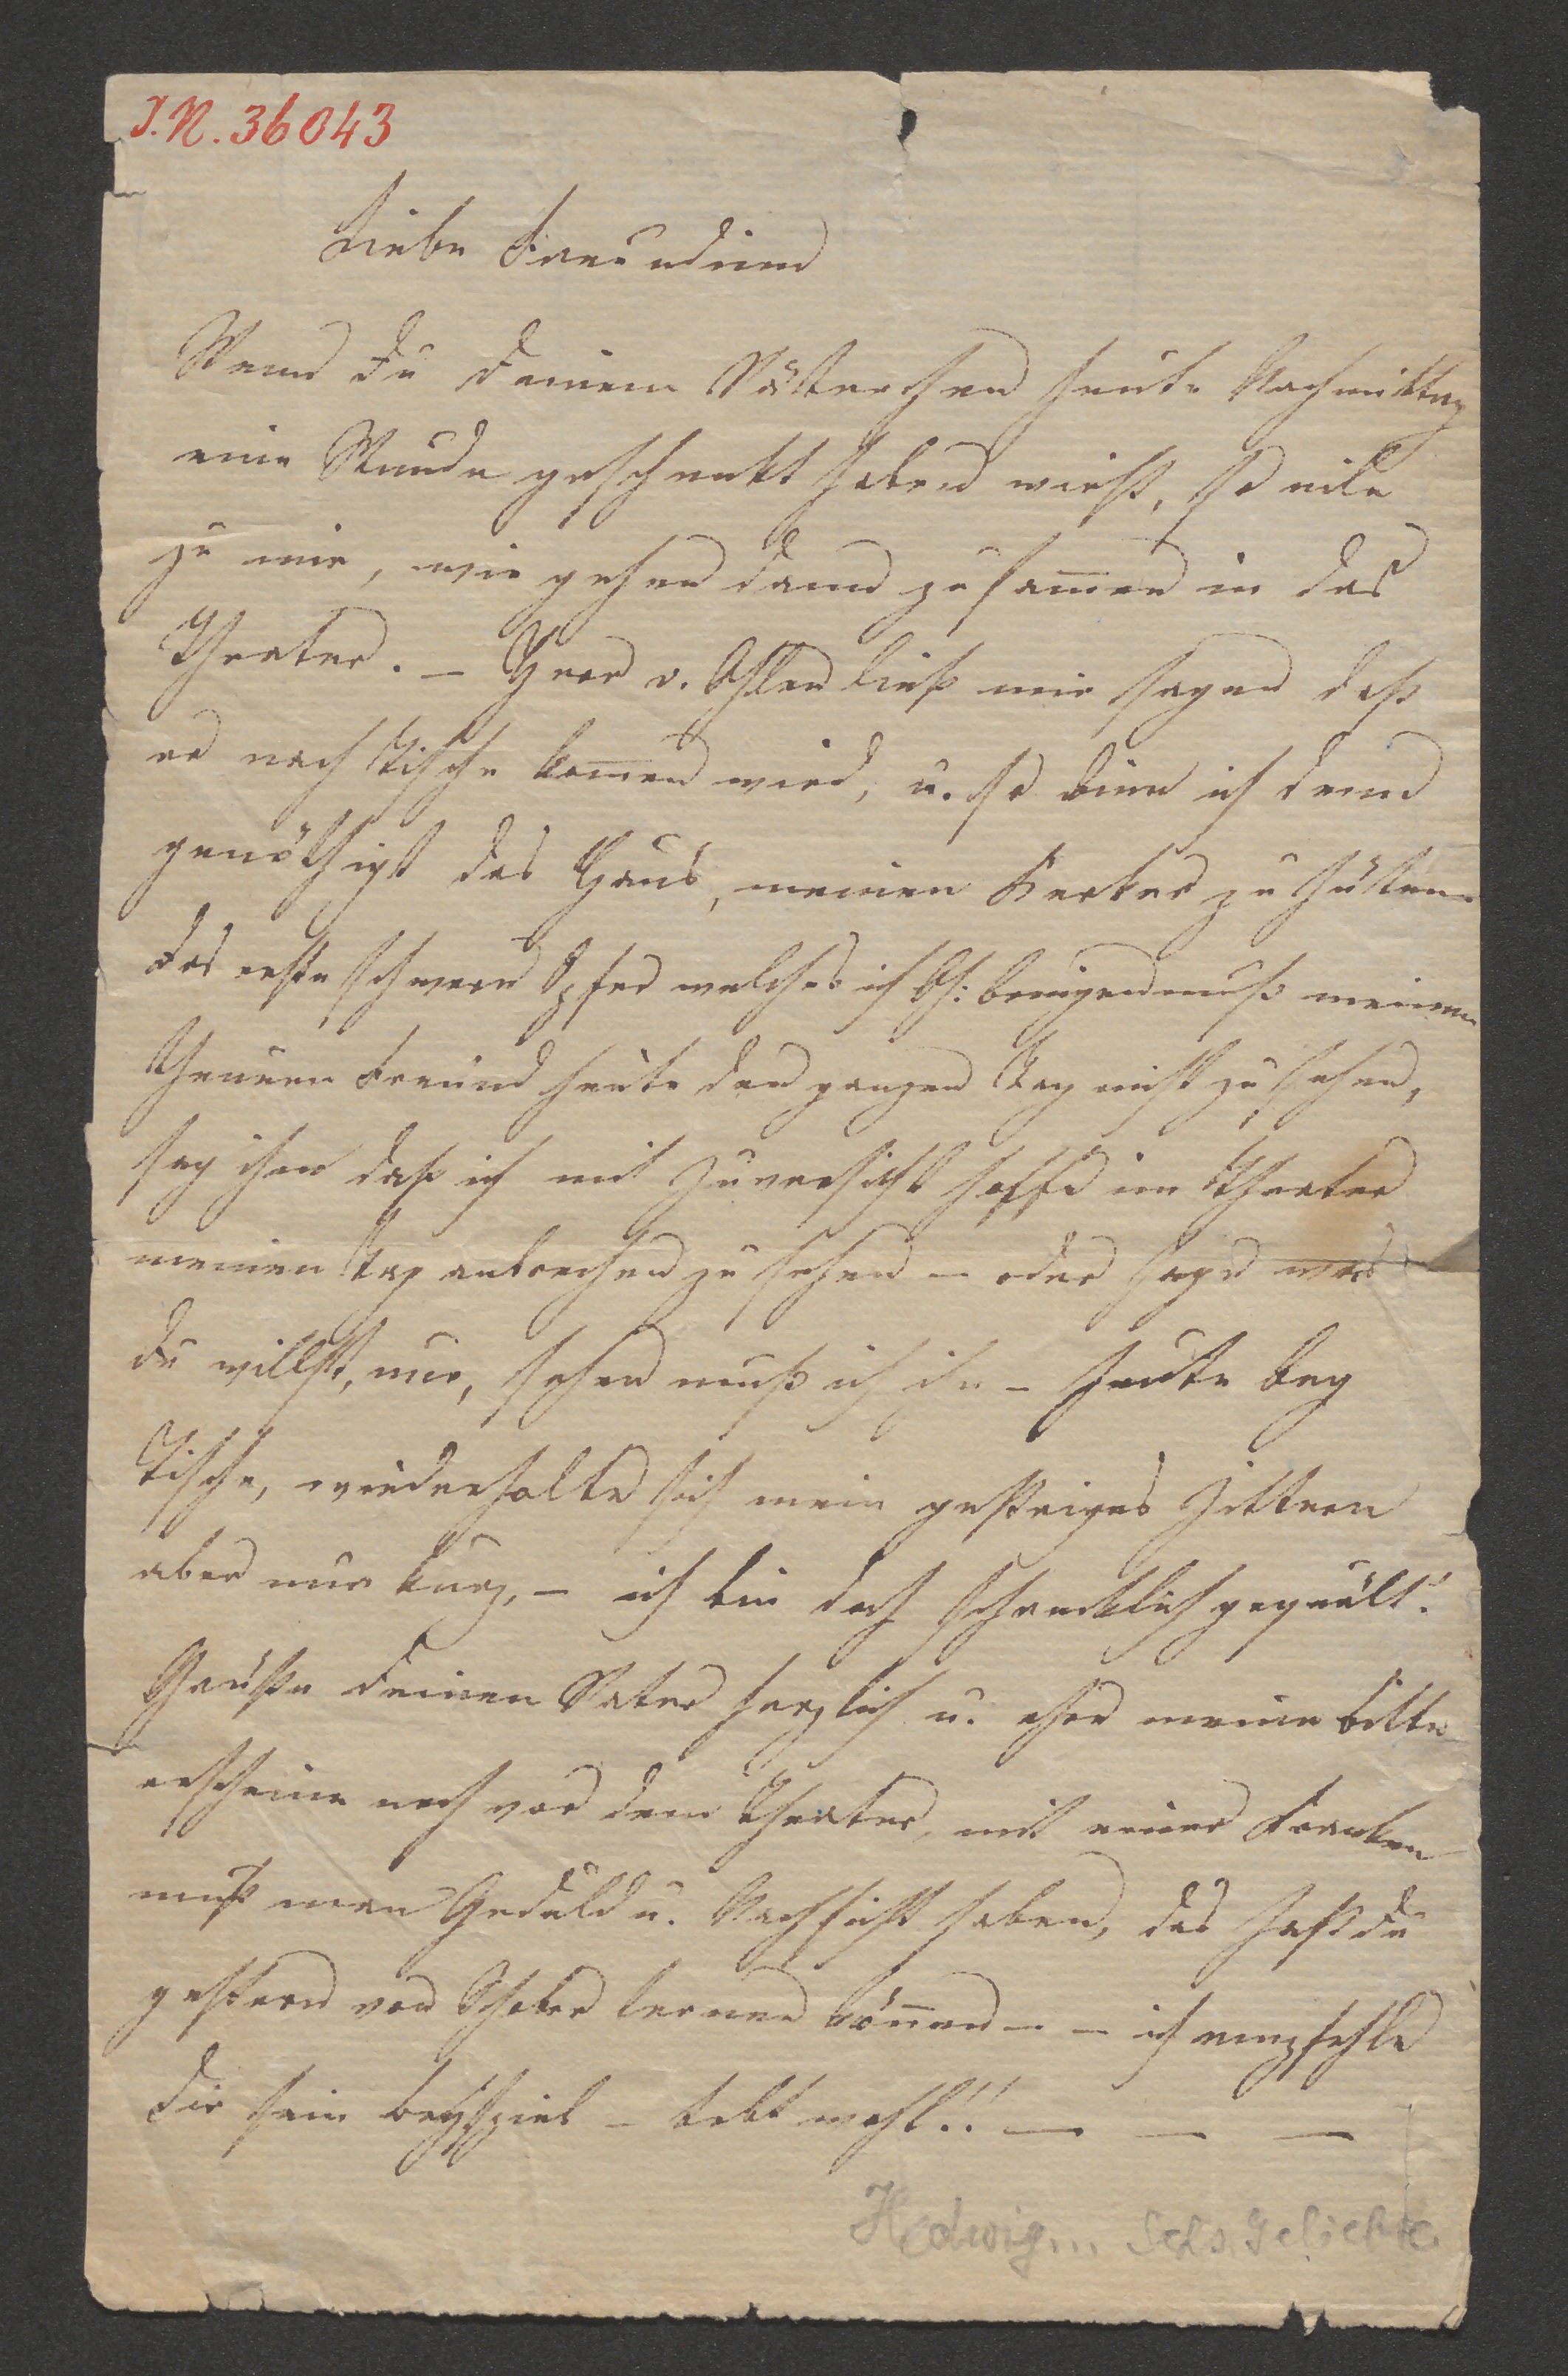 J.N. 36043
Liebe Freundinn
Wenn du deinem Väterchen heute Nachmittag
eine Stunde geschenkt haben wirst, so eile
zu mir, wir gehen dann zusam̄en in das
Theater. – Herr v. liess mir sagen dass
er nach Tische kom̄en wird, u. so binn ich denn
genöthigt das Haus, meinen Kerker zu hütten
das erste schwere Opfer welches ich bringen muss meinen
theuern Freund heute den ganzen Tag nicht zu sehen,
sag ihm dass ich mit Zuversicht hoffe im Theater
meinen Tag anbrechen zu sehen – oder sage was
du willst, nur, sehen muss ich ihn – heute bey
Tische, wiederholte sich mein gestriges Zittern
aber nur kurz, – ich bin doch schrecklich gequält!
Grüsse deinen Vater herzlich u. meine bitte
erscheine noch vor dem Theater, mit einer Kranken
muss man Geduld u. Nachsicht haben, das hast du
gestern von Schober lernen kön̄en – – ich empfehle
dir sein beyspiel – lebt wohl!! – – –
Hedwig... Sch's. Geliebte.